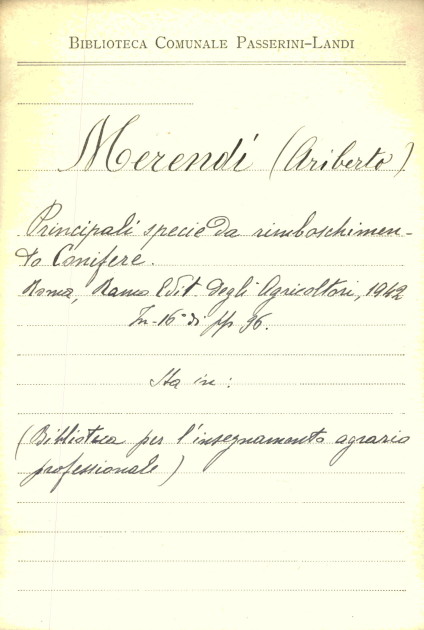 BIBLIOTECA COMUNALE PASSERINI-LANDI
Merendi (Ariberto)
Principali specie da rimboschimen-
to Conifere.
Roma, Ramo Edit. Degli Agricoltori, 1942
In-16° di pp 96.
Sta in:
(Biblioteca per l'insegnamento agrario
professionale)